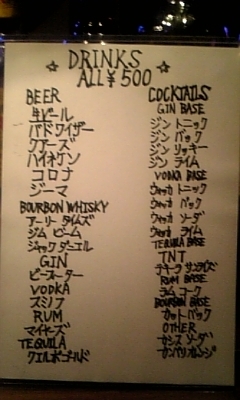 ☆ DRINKS ☆
ALL ¥500
BEER
生ビール
バドワイザー
クアーズ
ハイネケン
コロナ
ジーマ
BOURBON WHISKY
アーリータイムズ
ジムビーム
ジャックダニエル
GIN
ビーフィーター
VODKA
スミノフ
RUM
マイヤーズ
TEQUILA
クエルボゴールド
COCKTAILS
GIN BASE
ジントニック
ジンバック
ジンリッキー
ジンライム
VODKA BASE
ウォッカトニック
ウォッカバック
ウォッカソーダ
ウォッカライム
TEQUILA BASE
TNT
テキーラサンライズ
RUM BASE
ラムコーク
BOURBON BASE
カーボーイ
OTHER
カシスソーダ
カンパリオレンジ